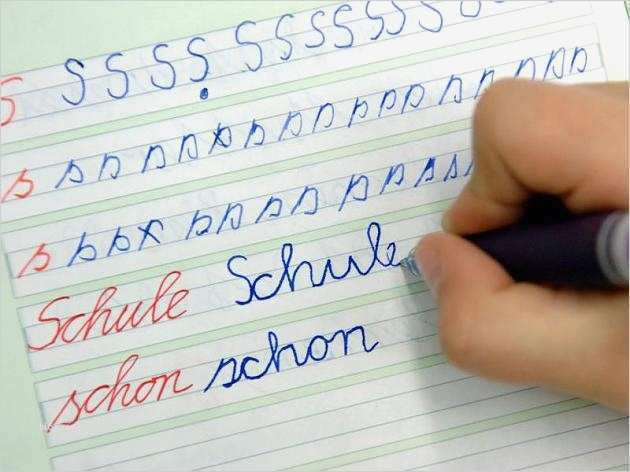 S S S S S S S S S S S S S S
s s s s s s s s s s s s s s s s s
s s s s s s s s s s s s s s
Schule Schule
schon schon